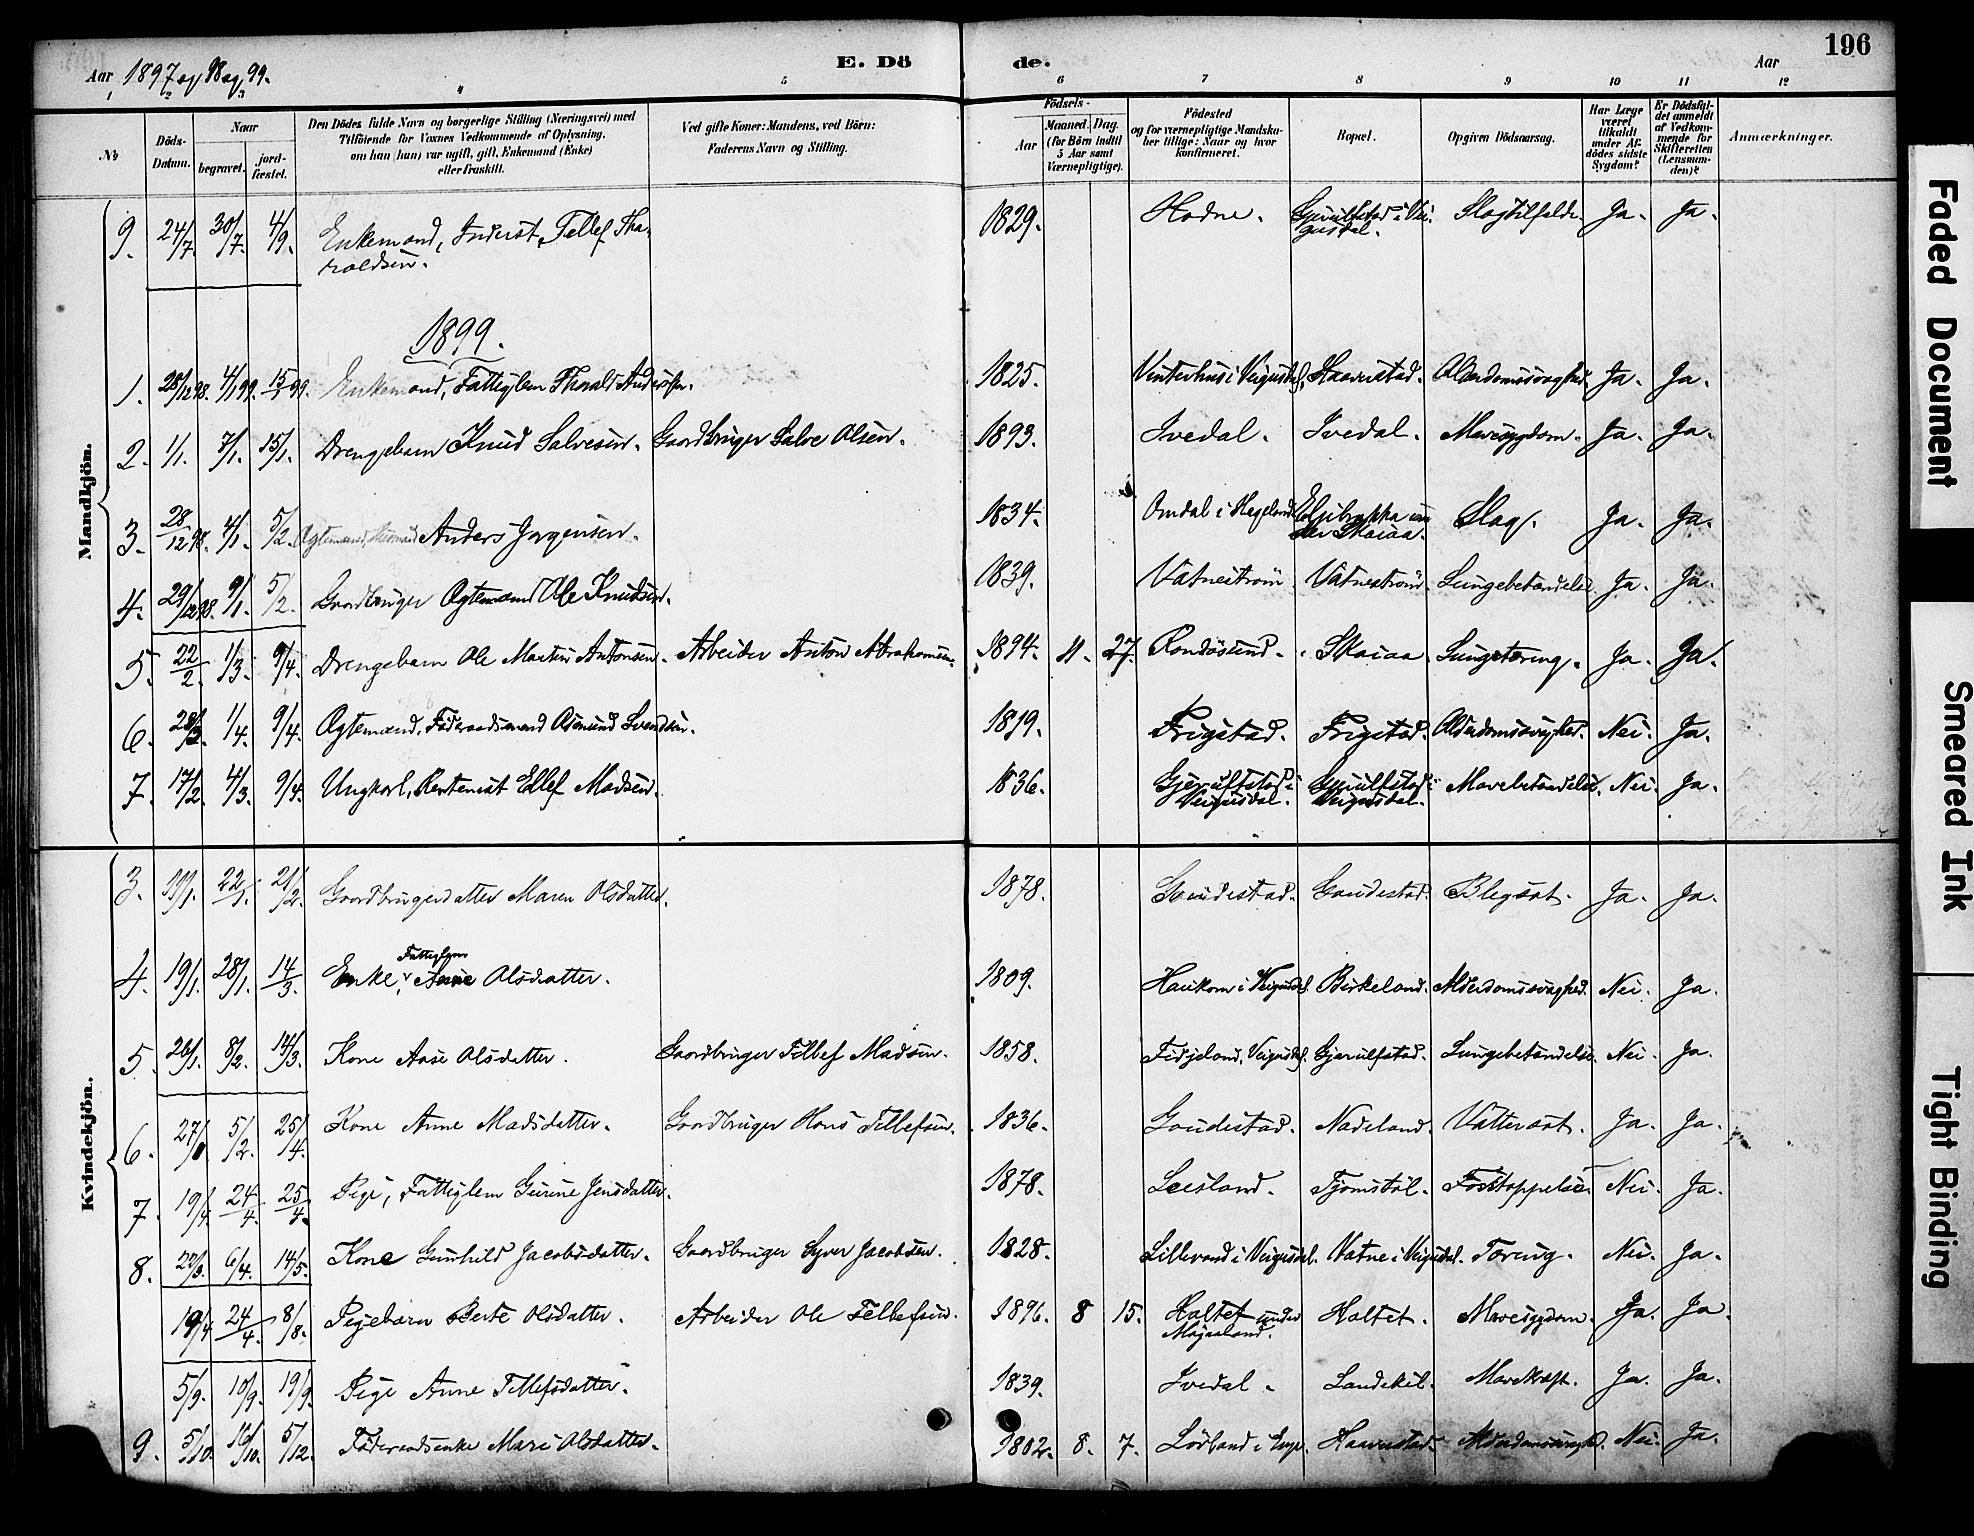 Aar 1897 og 98 og 99.
E. Dö
de.
Aar
196
1 2 3 4 5 6 7 8 9 10 11 12
No
Döds-Datum.
Naar
begravet.
jord-fæstet.
Den Dödes fulde Navn og borgerlige Stilling (Næringsvei) med
Tilföiende for Voxnes Vedkommende af Oplysning,
om han (hun) var ugift, gift, Enkemand (Enke)
eller fraskilt.
Ved gifte Koner: Mandens, ved Börn:
Faderens Navn og Stilling.
Födsels-
Aar
Maaned. Dag.
(for Börn indtil
5 Aar samt
Værnepligtige).
Födested
og for værnepligtige Mandska-
ber tillige: Naar og hvor
konfirmeret.
Bopæl.
Opgiven Dödsaarsag.
Har Læge
været
tilkaldt
under Af-
dödes sidste
Sygdom?
Er Dödsfal-
det anmeldt
af Vedkom-
mende for
Skifteretten
(Lensman-
den)?
Anmærkninger.
Mandkjön.
9. 24/7. 30/7. 4/9. Enkemand, Inderst, Tellef Tha-
raldsen. 1829. Hodne. Gjerulfstad i Vei-
gusdal. Slagtilfælde. Ja. Ja.
1899.
1. 28/12 98. 4/1 99. 15/1 99. Enkemand, Fattiglem Tharald Andersen. 1825. Vinterhus i Veigusdal. Haaverstad. Alderdomssvaghed. Ja. Ja.
2. 1/1. 7/1. 15/1. Drengebarn Knud Salvesen. Gaardbruger Salve Olsen. 1893. Ivedal. Ivedal. Mavesygdom. Ja. Ja.
3. 28/12 98. 4/1. 5/2. Ægtemand, Anders Jørgensen. 1834. Omdal i Hægeland. Skaiaa. Slag. Ja. Ja.
4. 29/12 98. 9/1. 5/2. Gaardbruger Ægtemand Ole Knudsen. 1839. Vatneström. Vatneström. Lungebetændelse. Ja. Ja.
5. 22/2. 1/3. 9/4. Drengebarn Ole Martin Antonsen. Arbeider Anton Abrahamsen. 1894. 11. 27. Randösund. Skaiaa. Lungetæring. Ja. Ja.
6. 28/3. 1/4. 9/4. Ægtemand, Föderaadsmand Asmund Svendsen. 1819. Frigstad. Frigstad. Alderdomssvaghed. Nei. Ja.
7. 17/2. 4/3. 9/4. Ungkarl, Rentenist Ellef Madsen. 1836. Gjerulfstad i
Veigusdal. Gjerulfstad i
Veigusdal. Mavebetændelse. Nei. Ja.
Kvindekjön.
3. 11/1. 22/1. 21/2. Gaardbrugerdatter Maren Olsdatter. 1878. Gaudestad. Gaudestad. Blegsot. Ja. Ja.
4. 19/1. 28/1. 14/3. Enke, Fattiglem Anne Olsdatter. 1809. Haukom i Veigusdal. Birkeland. Alderdomssvaghed. Nei. Ja.
5. 26/1. 8/2. 14/3. Kone Aase Olsdatter. Gaardbruger Tellef Madsen. 1858. Fidjeland, Veigusdal. Gjerulfstad. Lungebetændelse. Nei. Ja.
6. 27/1. 5/2. 25/4. Kone Anne Madsdatter. Gaardbruger Hans Tellefsen. 1836. Gaudestad. Nadeland. Vattersot. Ja. Ja.
7. 19/4. 24/4. 25/4. Pige, Fattiglem Gurine Jensdatter. 1878. Leisland. Tjomstöl. Forstoppelse. Nei. Ja.
8. 22/3. 6/4. 14/5. Kone Gunhild Jacobsdatter. Gaardbruger Syver Jacobsen. 1828. Lillevand i Veigusdal. Vatne i Veigusdal. Tæring. Nei. Ja.
19/4. 24/4. 8/8. Pigebarn Berte Olsdatter. Arbeider Ole Tellefsen. 1896. 8 15. Holtet under
Mosaaland. Holtet. Mavesygdom. Ja. Ja.
5/9. 10/9. 19/9. Pige Anne Tellefsdatter. 1839. Ivedal. Landekil. Mavekræft. Ja. Ja.
9. 5/10. 16/10. 5/12. Föderaadsenke Mari Olsdatter. 1802. 8. 7. Haaverstad. Alderdomssvaghed. Nei. Ja.
Faded Document
Smeared Ink
Tight Binding